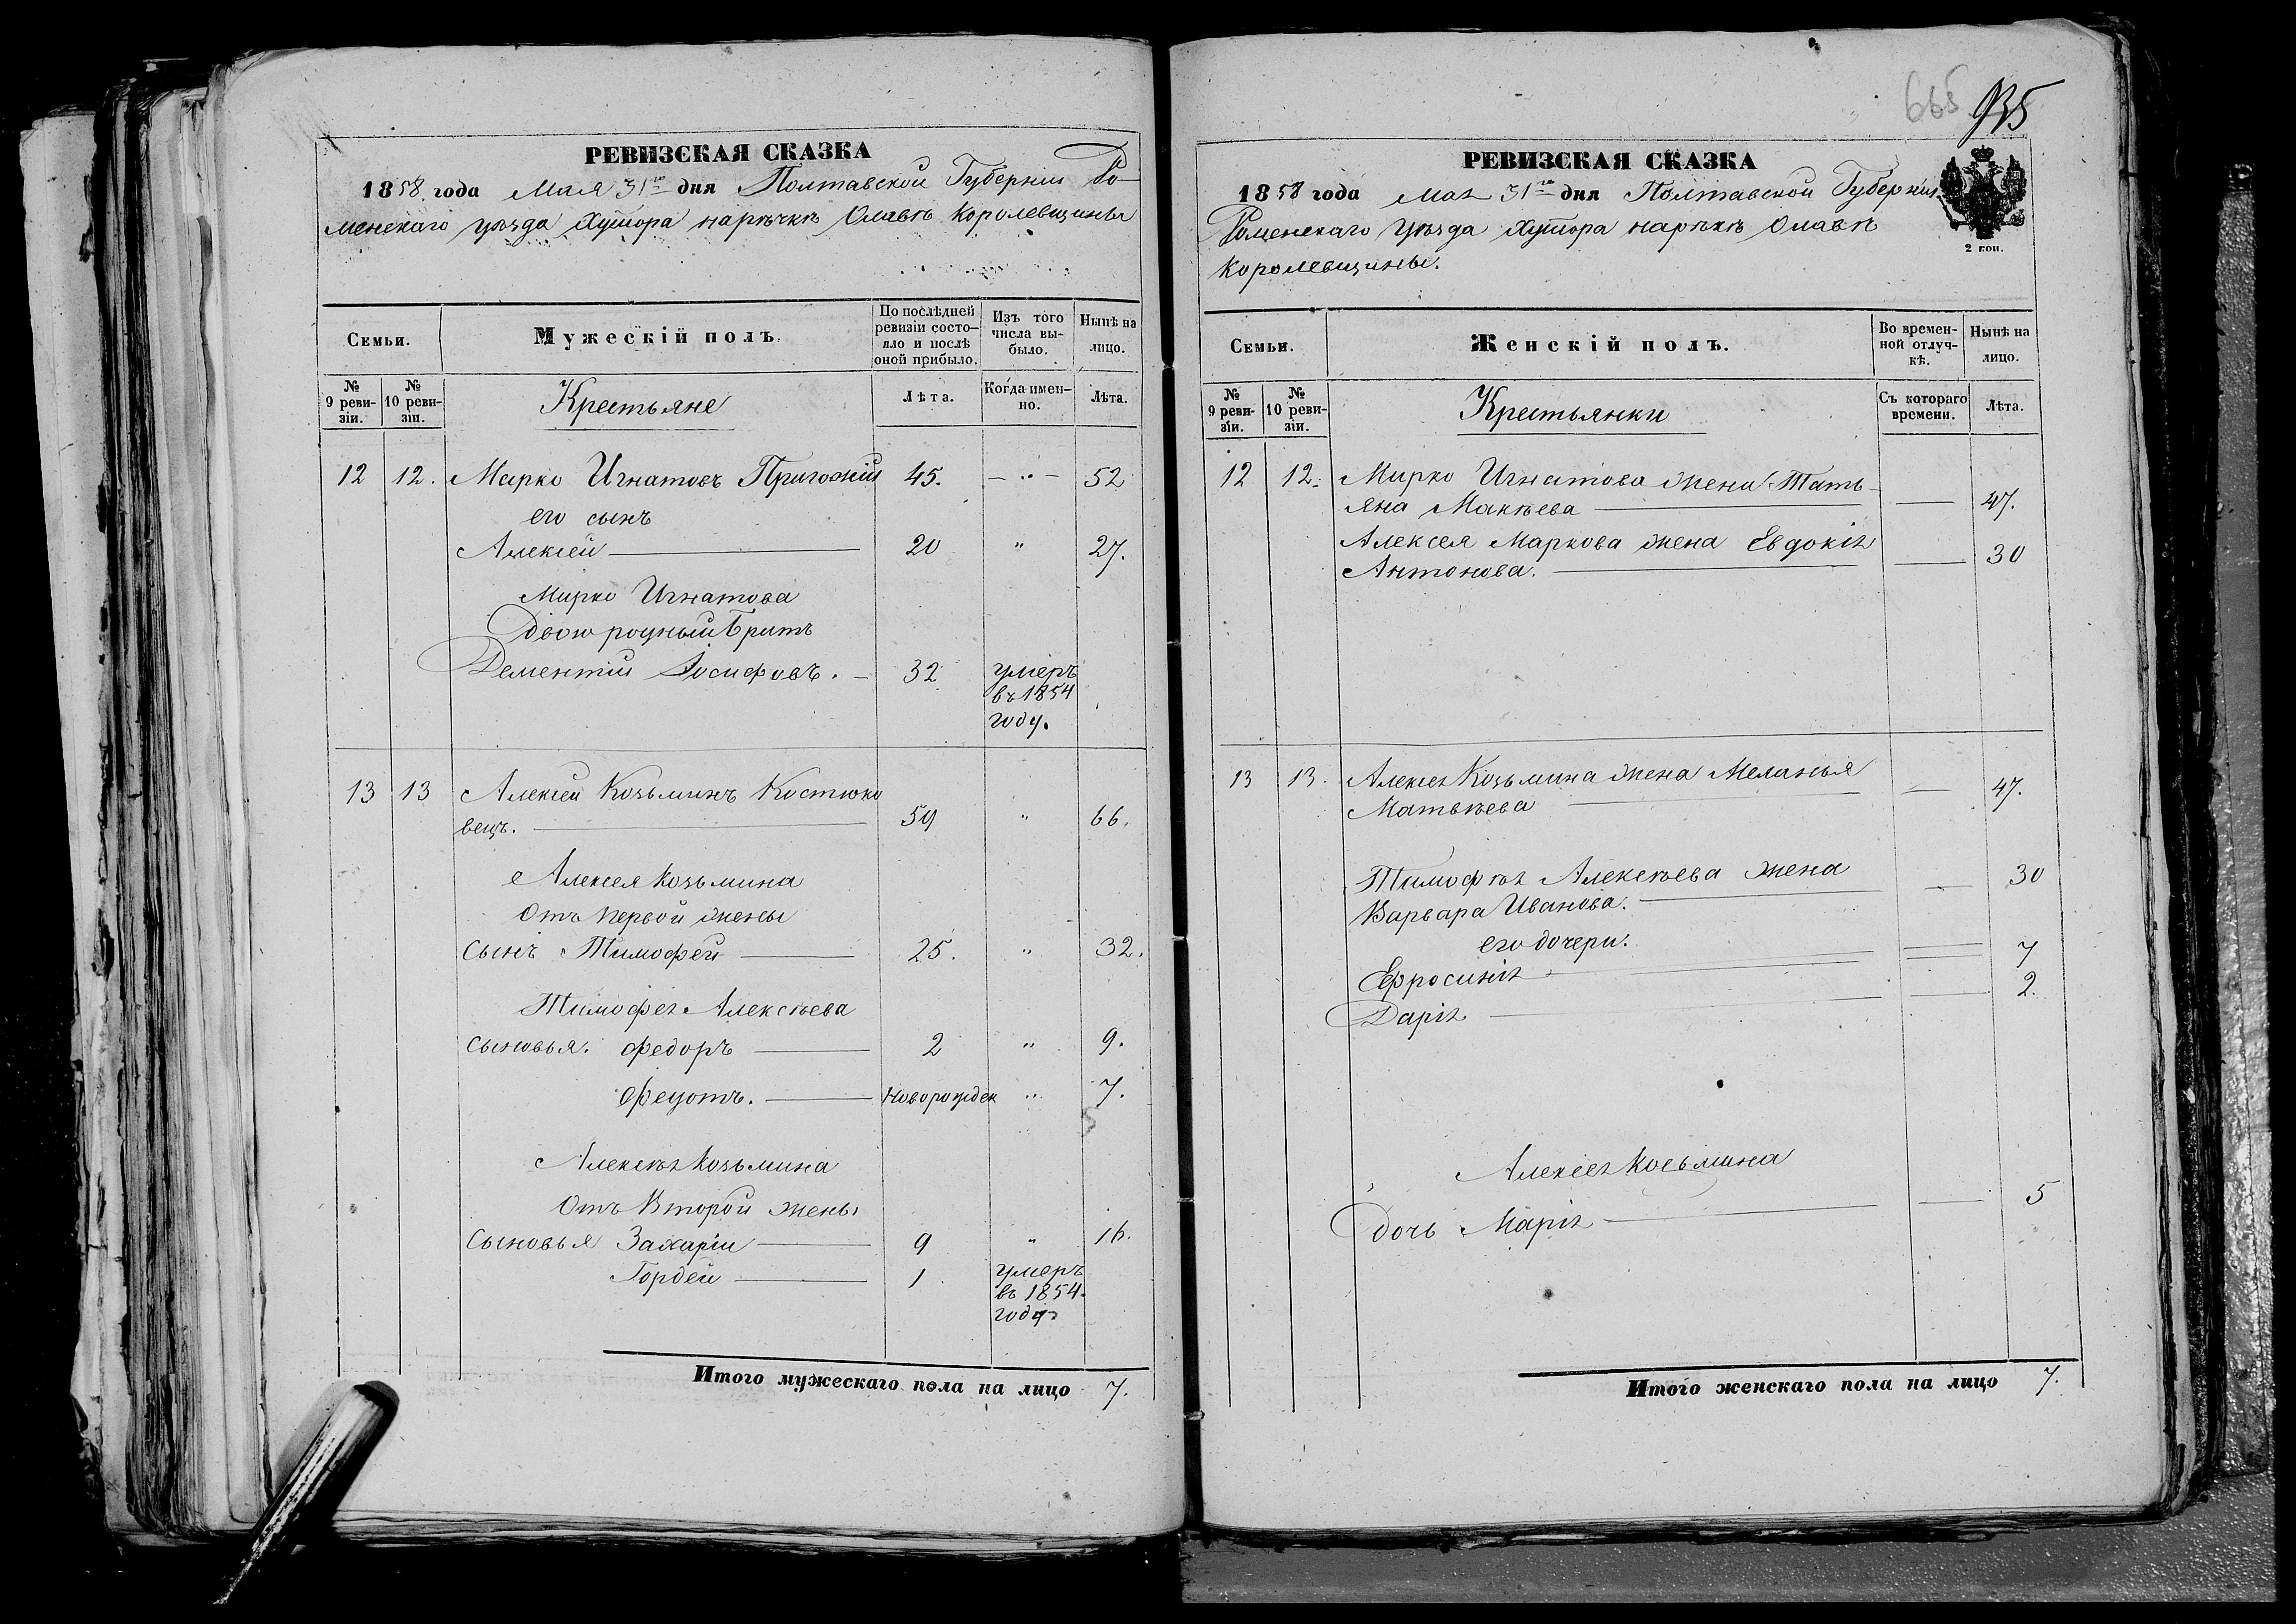 РЕВИЗСКАЯ СКАЗКА
1858 года Мая 31го дня Полтавской Губернии Ро-
менскаго уѣзда Хутора нарѣчкѣ Олавѣ Королевщины
Семьи.
Мужескій полъ.
По послѣдней ревизіи состо-яло и послѣ оной прибыло.
Изъ того числа вы-было.
Нынѣ на лицо.
№ 9 реви-зіи.
№ 10 реви-зіи.
Крестьяне
Лѣта.
Когда имен-но.
Лѣта.
12 12. Марко Игнатовъ Пригожій 45. — " — 52
его сынъ
Алексей 20 " 27.
Марко Игнатова
Двоюродный братъ
Дементій Иосифовъ. 32 умеръ
въ 1854
году.
13 13 Алексей Козьминъ Костюко
вецъ. 59 " 66.
Алексея Козьмина
Отъ первой жены
Сынъ Тимофей 25. " 32.
Тимофея Алексѣева
Сыновья. Федоръ 2 " 9.
Федотъ. Новорожден " 7.
Алексѣя Козьмина
Отъ Второй жены
Сыновья Захарій 9 " 16.
Гордей 1 умеръ
въ 1854
году
Итого мужескаго пола на лицо 7.
665 935
РЕВИЗСКАЯ СКАЗКА
1858 года Мая 31го дня Полтавской Губерніи
Роменскаго Уѣзда Хутора нарѣкѣ Олавѣ
Королевщины.
2 коп.
Семьи.
Женскій полъ.
Во времен-ной отлуч-кѣ.
Нынѣ на лицо.
№ 9 реви-зіи.
№ 10 реви-зіи.
Крестьянки
Съ котораго времени.
Лѣта.
12 12. Марко Игнатова жена Тать-
яна Макѣева 47.
Алексея Маркова жена Евдокія
Антонова. 30
13 13. Алексея Козьмина жена Меланья
Матвѣева 47.
Тимофѣя Алексѣева жена 30
Варвара Иванова.
его дочери. 7
Ефросинія 2.
Дарія
Алексея Козьмина
дочь Марія 5
Итого женскаго пола на лицо 7.